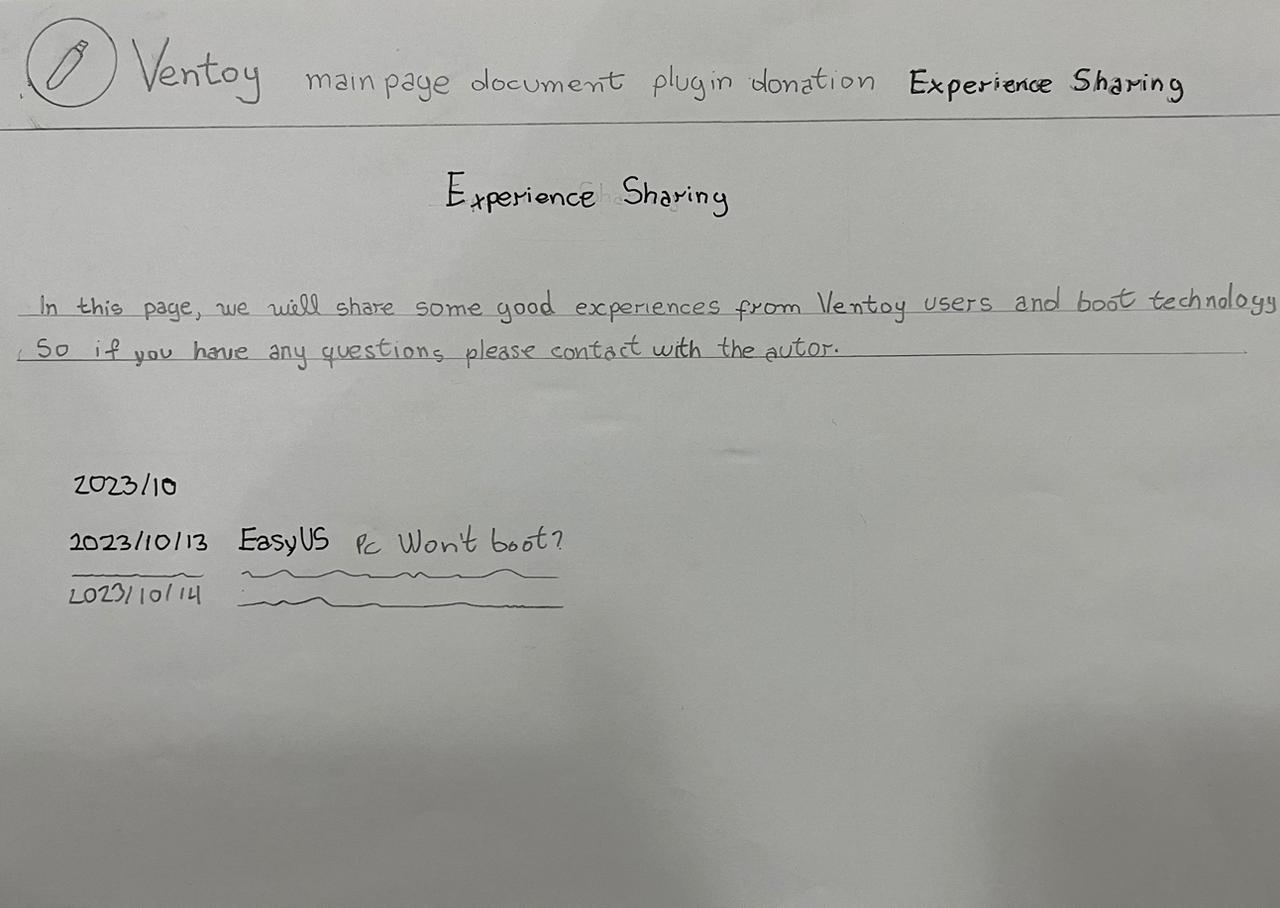 Ventoy main page document plugin donation Experience Sharing
Experience Sharing
In this page, we will share some good experiences from Ventoy users and boot technology
So if you have any questions please contact with the autor.
2023/10
2023/10/13 EasyUS Pc Won't boot?
2023/10/14